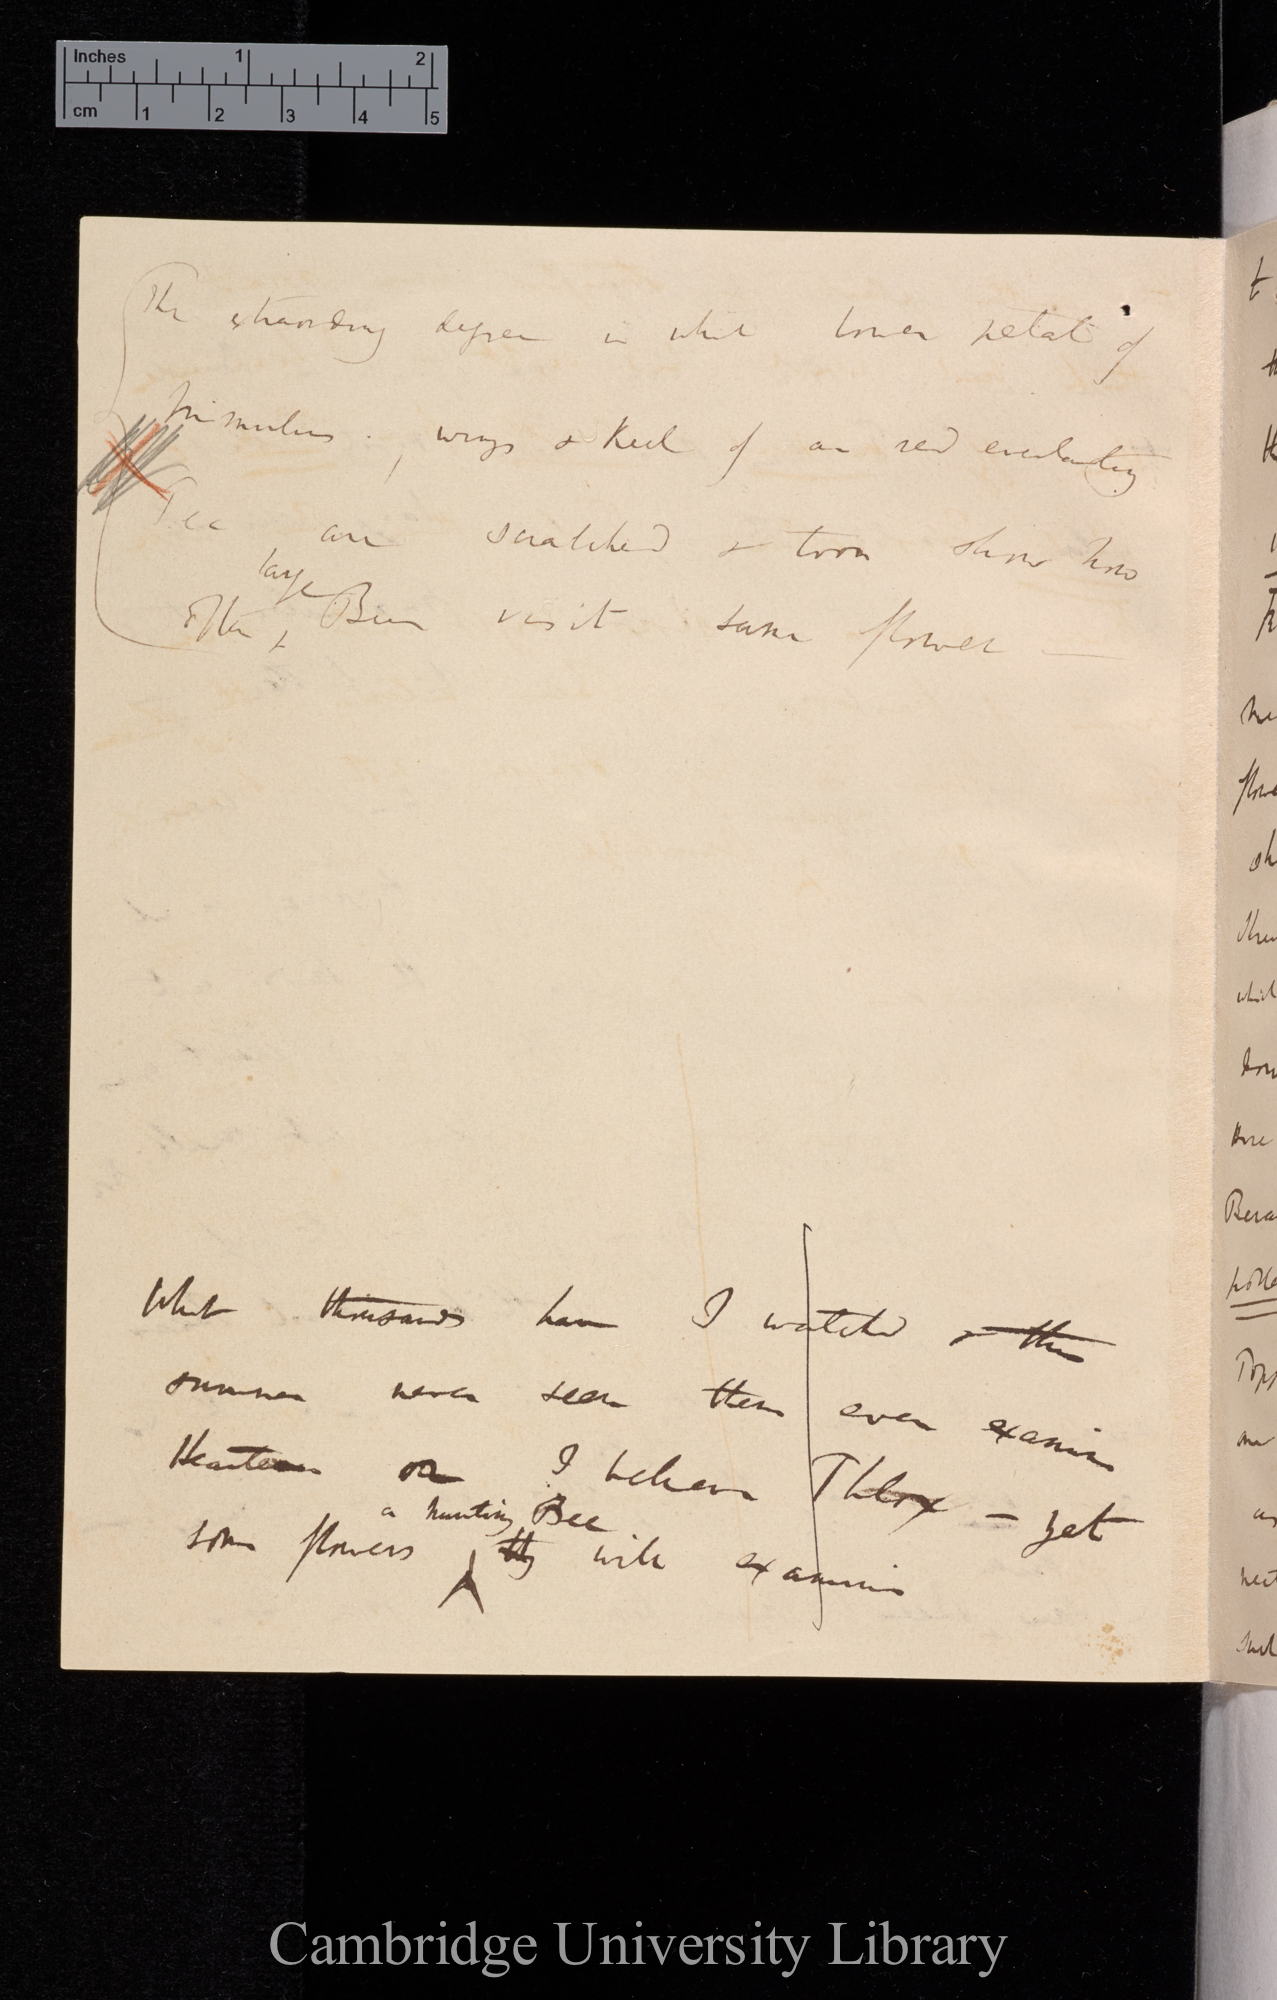 Inches 1 2
cm 1 2 3 4 5
The extraordinary degree in which lower petal of
mimulus, wings & Keel of an red everlasting
Pea are scratched & torn show how
large
often Bees visit same flower —
What thousands have I watched & this
summer never seen them even examine
Heartsease or I believe Phlox — yet
a hunting Bee
some flowers they will examine
t
flowe
which
Bera
Cambridge University Library